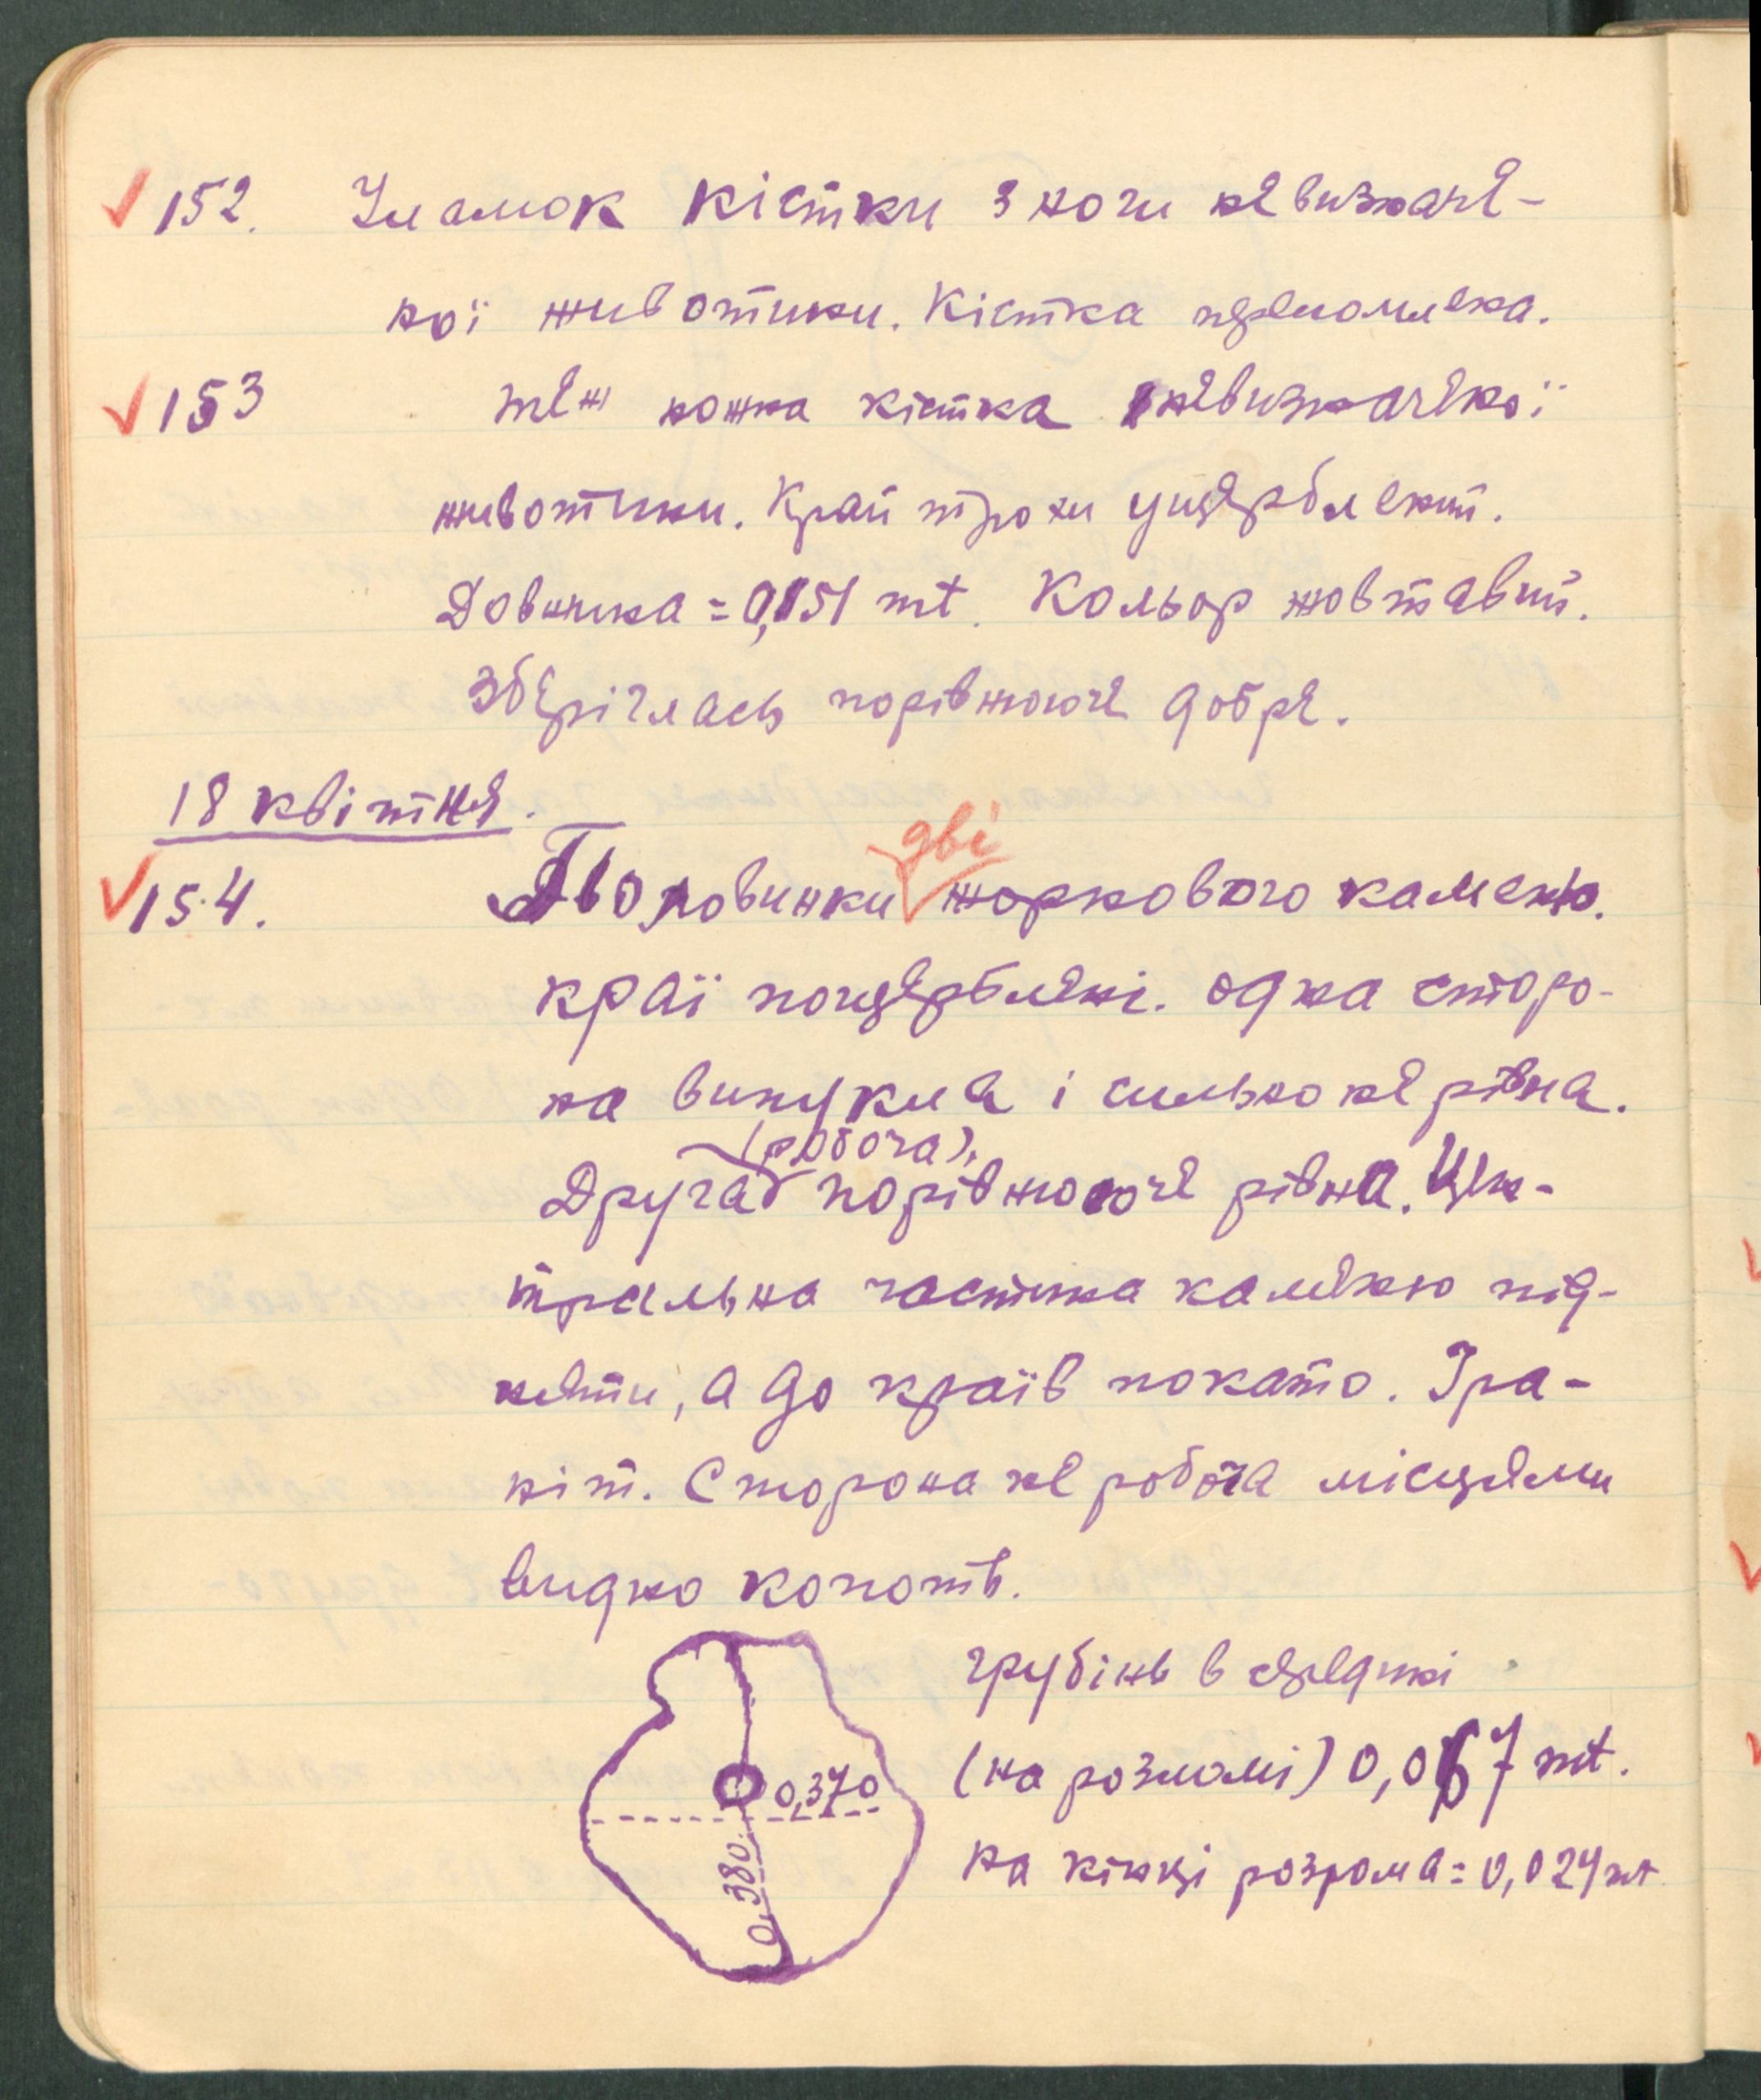 152. Уламок кістки з ноги невизначе-
ної животини. Кістка переломлена.
153 теж ножна кістка невизначеної
животини. Край трохи ущерблений.
Довжина = 0,151 mt. Кольор жовтавий.
Збереглась порівнюючи добре.
18 квітня.
154. Половинки дві жорнового каменю.
краї пощерблені. одна сторо-
на випукла і сильно не рівна.
(робоча),
Друга порівнююче рівна. Цен-
тральна частина каменю під-
нята, а до країв покато. Гра-
ніт. Сторона не робоча місцями
видно копоть.
грубінь в середині
(на розломі) 0,067 mt.
на кінці розлома = 0,024 mt
0,370
0,380